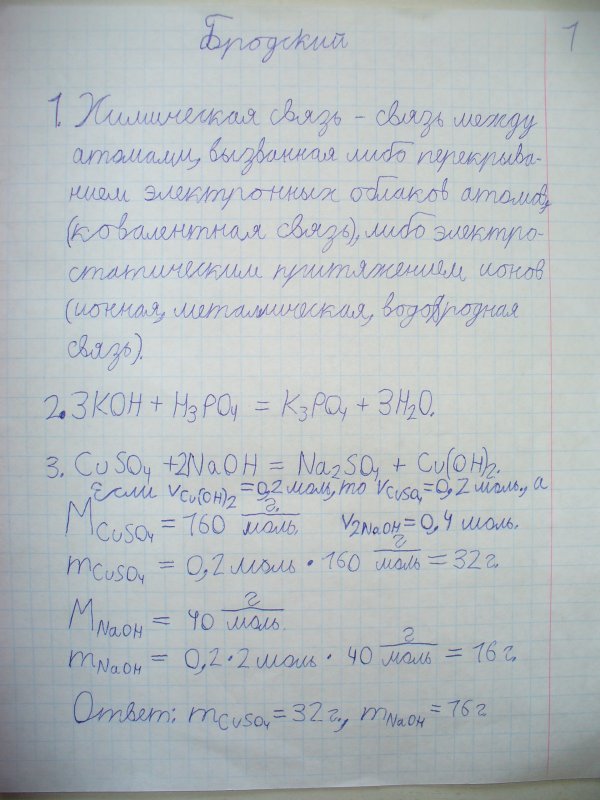 Бродский 1
1. Химическая связь - связь между
атомами, вызванная либо перекрыва-
нием электронных облаков атомов,
(ковалентная связь), либо электро-
статическим притяжением ионов
(ионная, металлическая, водородная
связь).
2. 3KOH + H₃PO₄ = K₃PO₄ + 3H₂O.
3. CuSO₄ + 2NaOH = Na₂SO₄ + Cu(OH)₂.
Если ν Cu(OH)₂ = 0,2 моль, то ν CuSO₄ = 0,2 моль, а
M CuSO₄ = 160 г/моль. ν 2NaOH = 0,4 моль.
m CuSO₄ = 0,2 моль · 160 г/моль = 32 г.
M NaOH = 40 г/моль.
m NaOH = 0,2 · 2 моль · 40 г/моль = 16 г.
Ответ: m CuSO₄ = 32 г., m NaOH = 16 г